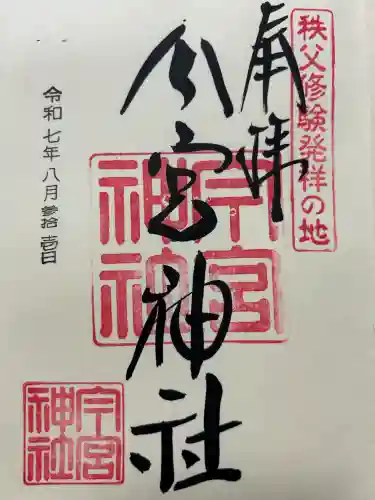 秩父修験発祥の地
奉拝
今宮神社
令和七年八月参拾壱日
今宮
神社
今宮
神社